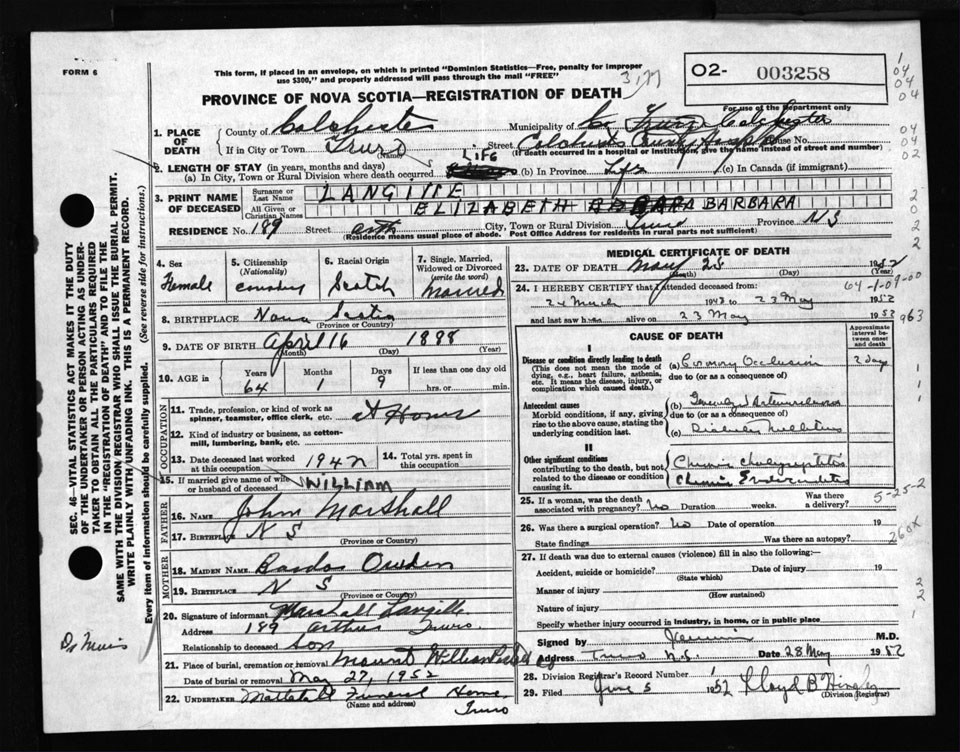 FORM 6
This form, if placed in an envelope, on which is printed "Dominion Statistics—Free, penalty for improper
use $300," and properly addressed will pass through the mail "FREE"
PROVINCE OF NOVA SCOTIA—REGISTRATION OF DEATH
02- 003258
For use of the Department only
1. PLACE OF DEATH
County of Colchester
Municipality of Co Truro Colchester
If in City or Town Truro (Name)
Street Colchester County Hospital House No.
(If death occurred in a hospital or institution, give the name instead of street and number)
2. LENGTH OF STAY (in years, months and days)
(a) In City, Town or Rural Division where death occurred LIFE (b) In Province Life (c) In Canada (if immigrant)
3. PRINT NAME OF DECEASED
Surname or Last Name LANGILLE
All Given or Christian Names ELIZABETH BARBARA
RESIDENCE No. 189 Street City, Town or Rural Division Truro Province N S
(Residence means usual place of abode. Post Office Address for residents in rural parts not sufficient)
4. Sex Female
5. Citizenship (Nationality)
6. Racial Origin Scotch
7. Single, Married, Widowed or Divorced (write the word) Married
8. BIRTHPLACE Nova Scotia
(Province or Country)
9. DATE OF BIRTH April 16 1888
(Month) (Day) (Year)
10. AGE Years 64 Months 1 Days 9 If less than one day old
hrs. or min.
OCCUPATION
11. Trade, profession, or kind of work as spinner, teamster, office clerk, etc. At Home
12. Kind of industry or business, as cotton-mill, lumbering, bank, etc.
13. Date deceased last worked at this occupation 1942
14. Total yrs. spent in this occupation
15. If married give name of wife or husband of deceased WILLIAM
FATHER
16. NAME John Marshall
17. BIRTHPLACE N S
(Province or Country)
MOTHER
18. MAIDEN NAME
19. BIRTHPLACE N S
(Province or Country)
20. Signature of informant Marshall Langille
Address 189 Arthur Truro
Relationship to deceased Son
21. Place of burial, cremation or removal Mount William
Date of burial or removal May 27, 1952
22. UNDERTAKER Mattatall Funeral Home
(Name and address)
Truro
MEDICAL CERTIFICATE OF DEATH
23. DATE OF DEATH May 25 1952
(Month) (Day) (Year)
24. I HEREBY CERTIFY that I attended deceased from:
24 March 1948 to 23 May 1952
and last saw h alive on 23 May 1952
CAUSE OF DEATH
Approximate interval between onset and death
I
Disease or condition directly leading to death
(This does not mean the mode of dying, e.g., heart failure, asthenia, etc. It means the disease, injury, or complication which caused death.
(a) Coronary Occlusion 2 Days
due to (or as a consequence of)
Antecedent causes
Morbid conditions, if any, giving rise to the above cause, stating the underlying condition last.
(b)
due to (or as a consequence of)
(c) Diabetes Mellitus
II
Other significant conditions
contributing to the death, but not related to the disease or condition causing it.
Chronic
Chronic
25. If a woman, was the death associated with pregnancy? No Duration weeks. Was there a delivery?
26. Was there a surgical operation? No Date of operation 19
State findings Was there an autopsy?
27. If death was due to external causes (violence) fill in also the following:—
Accident, suicide or homicide? Date of injury 19
(State which)
Manner of injury
(How sustained)
Nature of injury
Specify whether injury occurred in industry, in home, or in public place
Signed by M.D.
Address Truro N.S. Date 28 May 1952
28. Division Registrar's Record Number
29. Filed June 5 1952 Lloyd B
(Division Registrar)
SEC. 46—VITAL STATISTICS ACT MAKES IT THE DUTY
OF THE UNDERTAKER OR PERSON ACTING AS UNDER-
TAKER TO OBTAIN ALL THE PARTICULARS REQUIRED
IN THE "REGISTRATION OF DEATH" AND TO FILE THE
SAME WITH THE DIVISION REGISTRAR WHO SHALL ISSUE THE BURIAL PERMIT.
WRITE PLAINLY WITH UNFADING INK. THIS IS A PERMANENT RECORD.
Every item of information should be carefully supplied. (See reverse side for instructions.)
64-1-09-00
963
5-25-2
260X